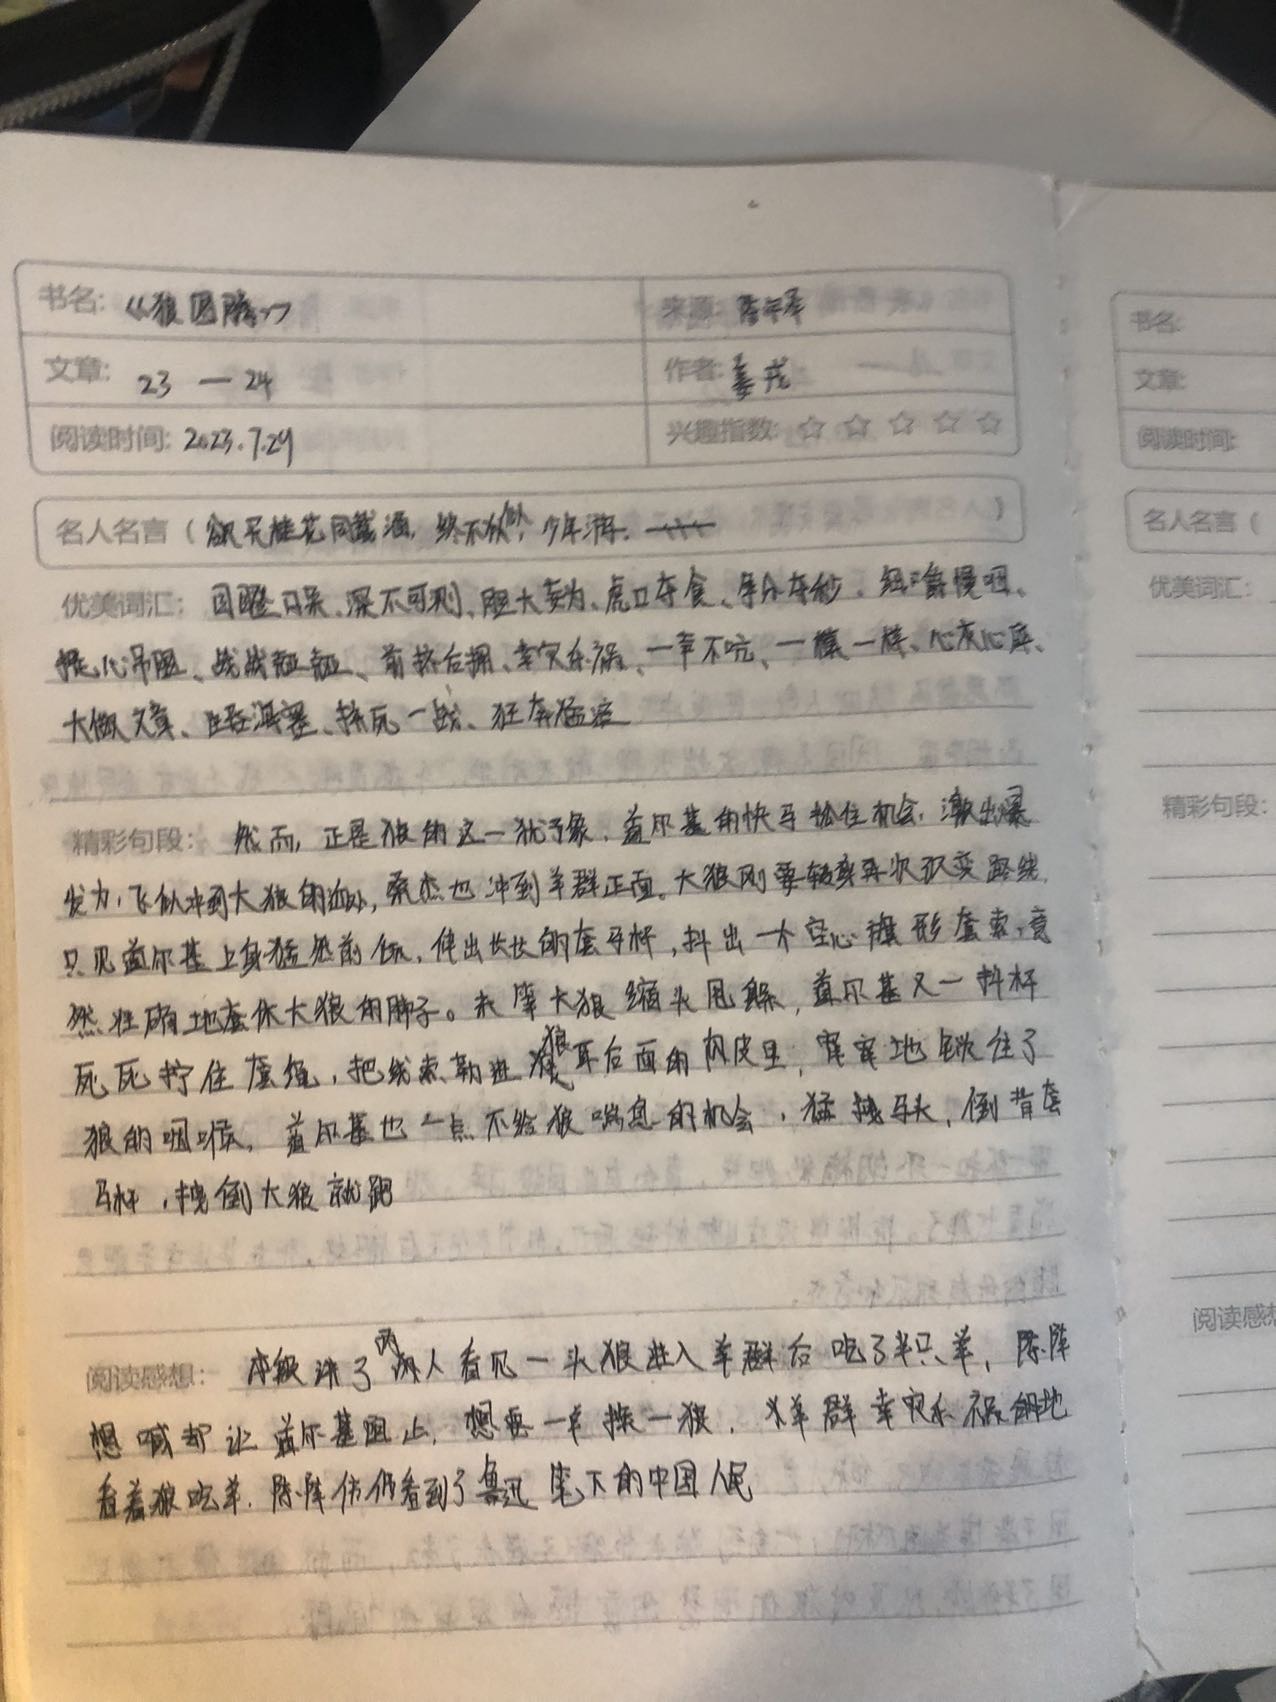 书名：《狼图腾》
来源：
文章：23一24
作者：姜戎
阅读时间：2023.7.29
兴趣指数：☆☆☆☆☆
名人名言（欲买桂花同载酒，终不似，少年游.）
优美词汇：目瞪口呆、深不可测、胆大妄为、虎口夺食、争分夺秒、细嚼慢咽、
提心吊胆、战战兢兢、前挤后拥、幸灾乐祸、一声不吭、一模一样、心灰心
大做文章、一战、狂奔猛
精彩句段：然而，正是狼的这一犹豫，的快马抢住机会，激出爆
发力，飞似冲到大狼的，桑杰也冲到羊群正面。大狼刚要再次改变路线，
只见上身猛然前倾，伸出长长的套马杆，抖出一个空心形套索，竟
然准确地套住大狼的脖子。未等大狼缩头甩躲，又一抖杆
死死拧住套绳，把绳索勒进狼耳后面的肉皮里，牢牢地锁住了
狼的咽喉。也一点不给狼喘息的机会，猛拨马头，倒背套
马杆，拽倒大狼就跑
阅读感想：本段讲了两人看见一头狼进入羊群后吃了半只羊，陈阵
想喊却让阻止，想要一，羊群幸灾乐祸的地
看着狼吃羊.陈阵仿佛看到了鲁迅笔下的中国人民
书名：
文章：
阅读时间：
名人名言（
优美词汇：
精彩句段：
阅读感想